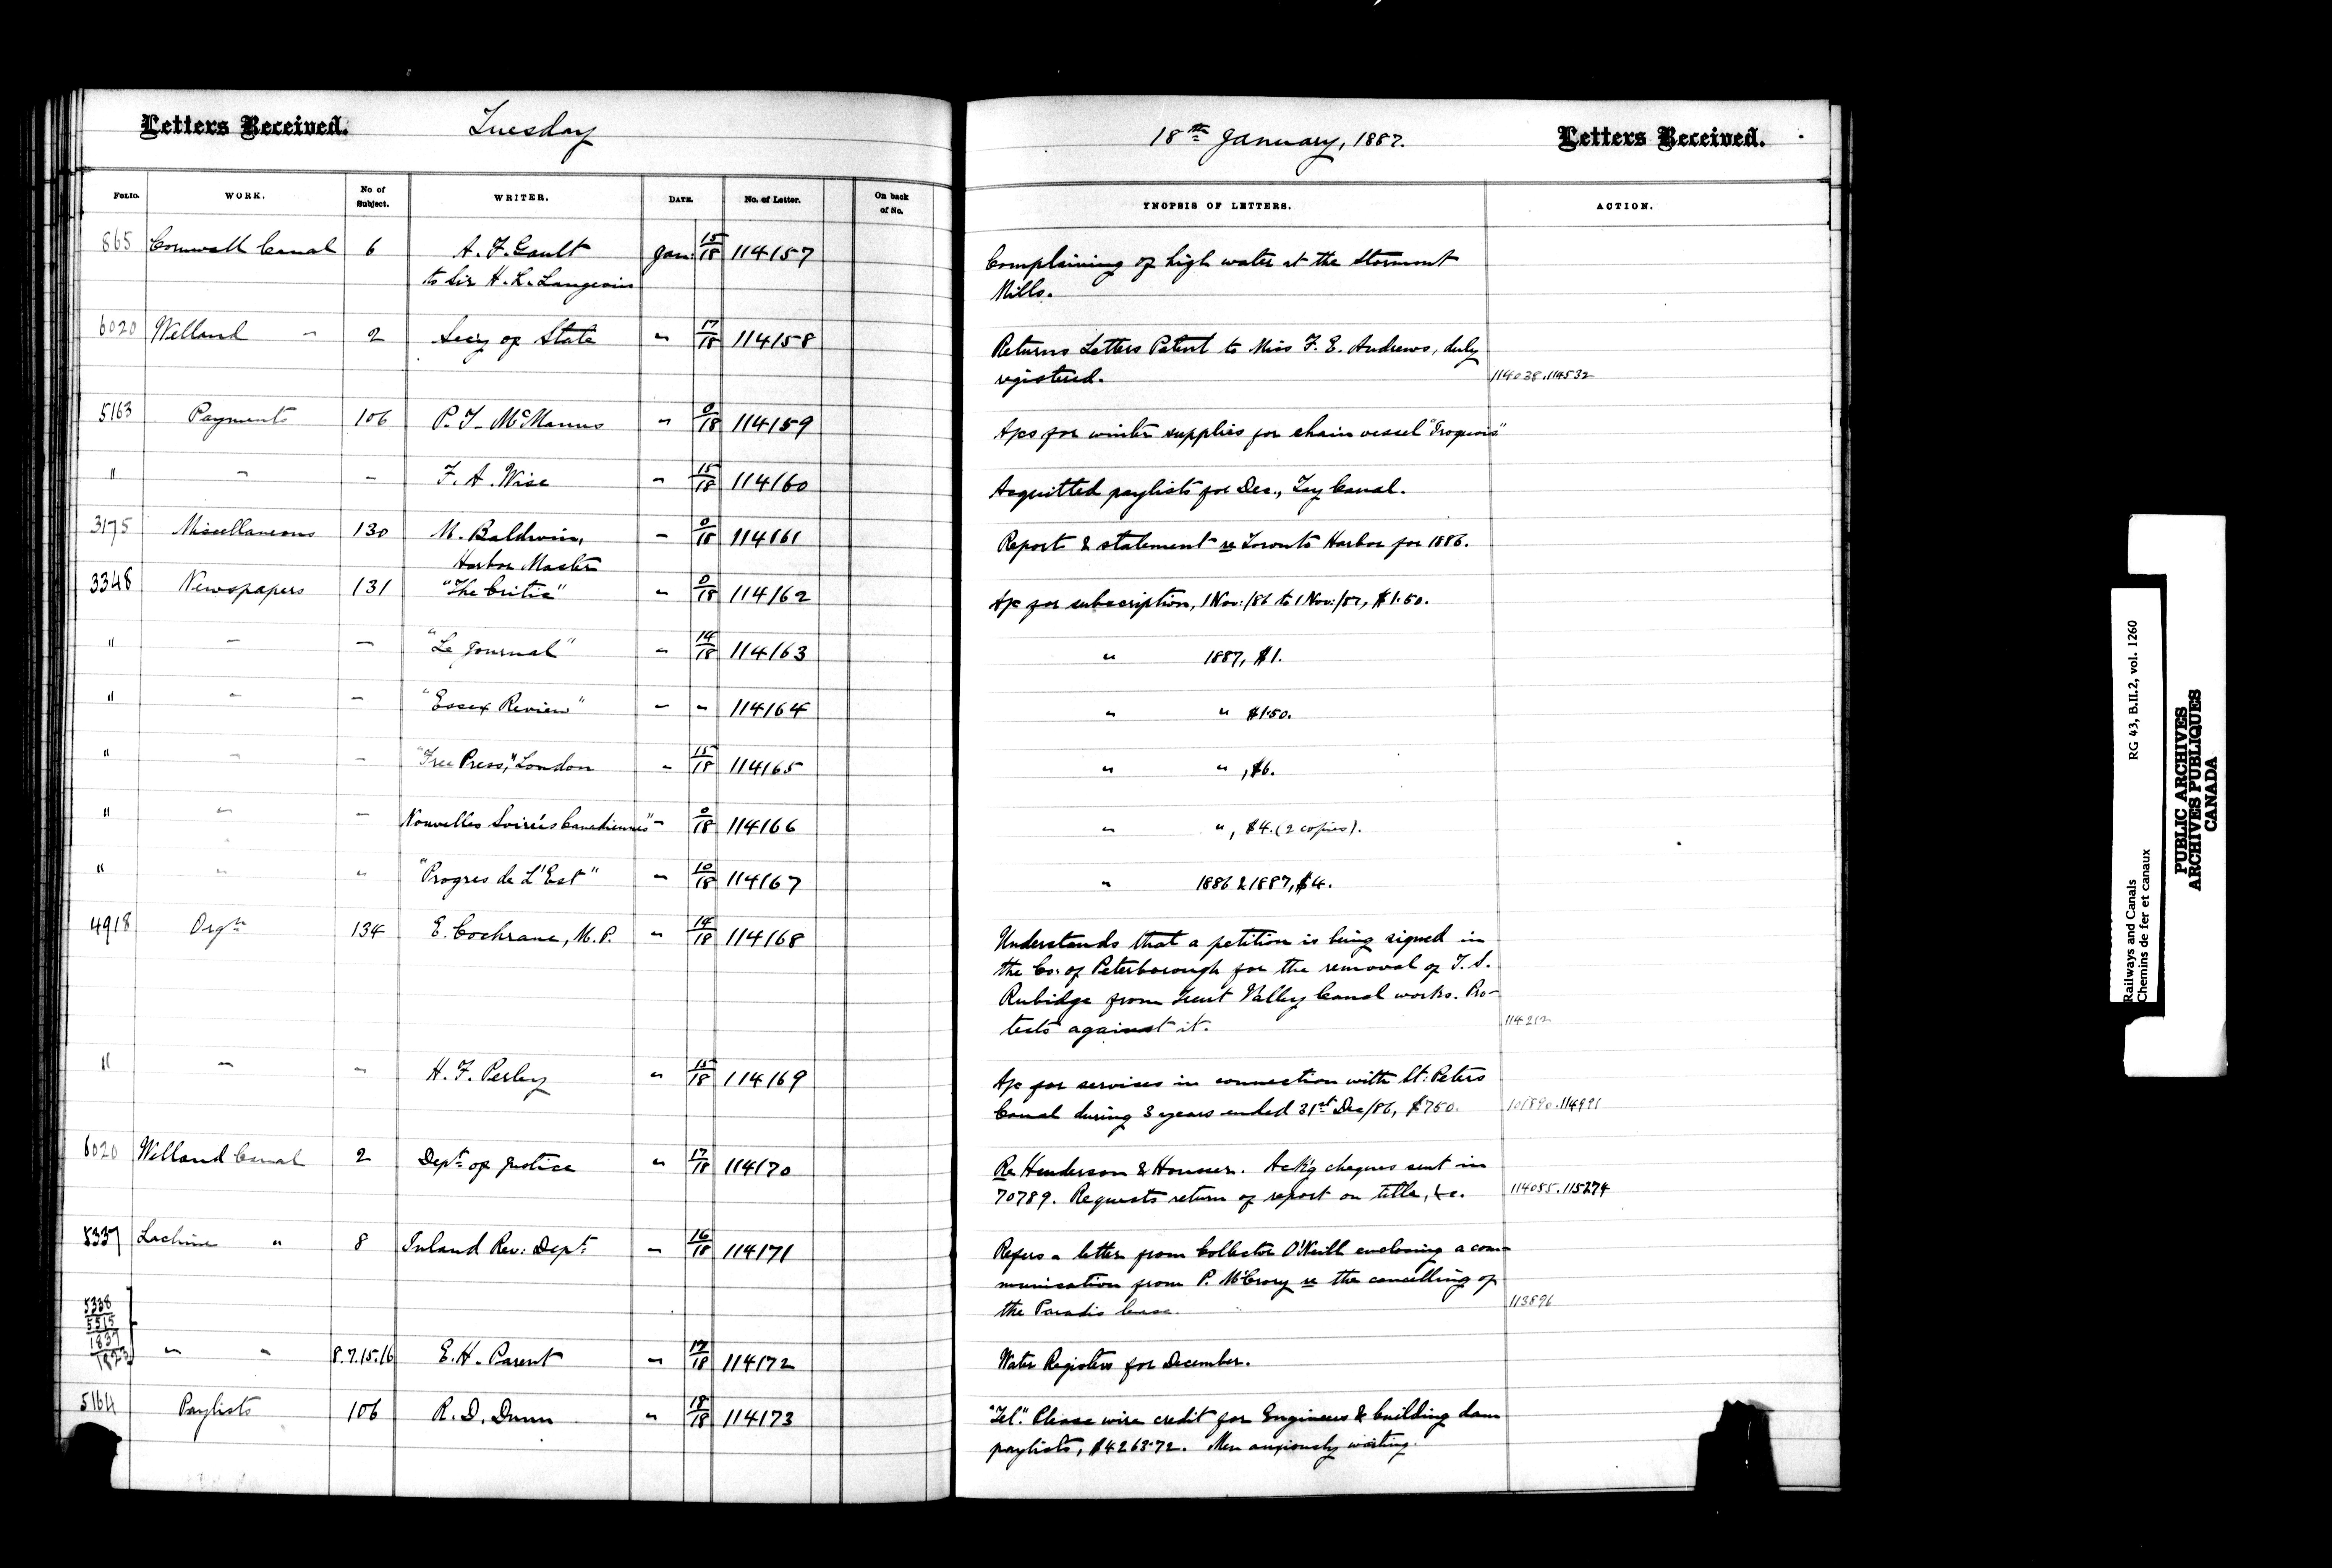 Letters Received. Tuesday 18th January, 1887. Letters Received.
FOLIO. WORK. No of Subject. WRITER. DATE. No. of Letter. On back of No. YNOPSIS OF LETTERS. ACTION.
865 Cornwall Canal 6 A. F. Gault Jan: 15/18 114157 Complaining of high water at the Stormont
to Sir H. L. Langevin Mills.
6020 Welland " 2 Secy of State " 17/18 114158 Returns Letters Patent to Miss F. E. Andrews, duly
registered. 114038.114532
5163 Payments 106 P. J. McManus " 0/18 114159 A/cs for winter supplies for chain vessel "Iroquois"
" " " F. A. Wise " 15/18 114160 Acquitted paylists for Dec., Tay Canal.
3175 Miscellaneous 130 M. Baldwin, " 0/18 114161 Report & statement re Toronto Harbor for 1886.
Harbor Master
3348 Newspapers 131 "The Critic" " 0/18 114162 A/c for subscription, 1 Nov:/86 to 1 Nov:/87, $1.50.
" " " "Le Journal" " 14/18 114163 " 1887, $1.
" " " "Essex Review" " " 114164 " " $1.50.
" " " "Free Press," London " 15/18 114165 " ", $6.
" " " Nouvelles Soirées Canadiennes" " 0/18 114166 " ", $4. (2 copies).
" " " "Progres de L'Est" " 10/18 114167 " 1886 & 1887, $4.
4918 Orgn 134 E. Cochrane, M.P. " 14/18 114168 Understands that a petition is being signed in
the Co: of Peterborough for the removal of T. S.
Rubidge from Trent Valley Canal works. Pro-
tests against it. 114212
" " " H. F. Perley " 15/18 114169 A/c for services in connection with St: Peters
Canal during 3 years ended 31st Dec/86, $750. 101890.114991
6020 Welland Canal 2 Dept of Justice " 17/18 114170 Re Henderson & Housser. Ack'g cheques sent in
70789. Requests return of report on title, &c. 114085.115274
5337 Lachine " 8 Inland Rev: Dept: " 16/18 114171 Refers a letter from Collector O'Neill enclosing a com-
munication from P. McCrory re the cancelling of
the Paradis lease. 113896
5338
5515
1837
1823 " " 8.7.15.16 E. H. Parent " 17/18 114172 Water Registers for December.
5164 Paylists 106 R. D. Dunn " 18/18 114173 "Tel". Please wire credit for Engineers & building dam
paylists, $4263.72. Men anxiously waiting.
Railways and Canals RG 43, B.II.2, vol. 1260
Chemins de fer et canaux
PUBLIC ARCHIVES
ARCHIVES PUBLIQUES
CANADA